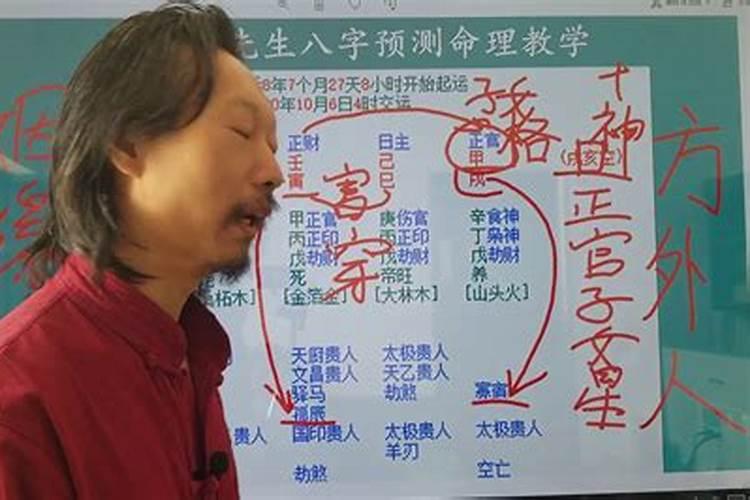 先生八字预测命理教学
8年7个月27天8小时开始起运
0年10月6日4时交运
正财 日主 正官
壬 己 甲
寅 巳 戌 (戌亥空)
甲正官 庚伤官 辛食神
丙正印 丙正印 丁枭神
戊劫财 戊劫财 戊劫财
死 帝旺 养
柘木] [金箔金] [大林木] [山头火]
天厨贵人 太极贵人
文昌贵人 天乙贵人
驿马 劫煞 寡宿
孤辰
贵人 国印贵人 太极贵人 太极贵人
羊刃
劫煞 空亡
十神
正官子女星
方外人